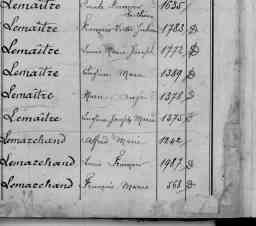 Lemaître Emile François 1635
Guillaume
Lemaître François Victor Julien 1783 D
Lemaître Louis Marie Joseph 1772 D
Lemaître Eugène Marie 1389 D
Lemaître Marie 1378 D
Lemaître Eugène Joseph Marie 1375 D
Lemarchand Alfred Marie 1242
Lemarchand Louis François 1987 D
Lemarchand François Marie 568 D